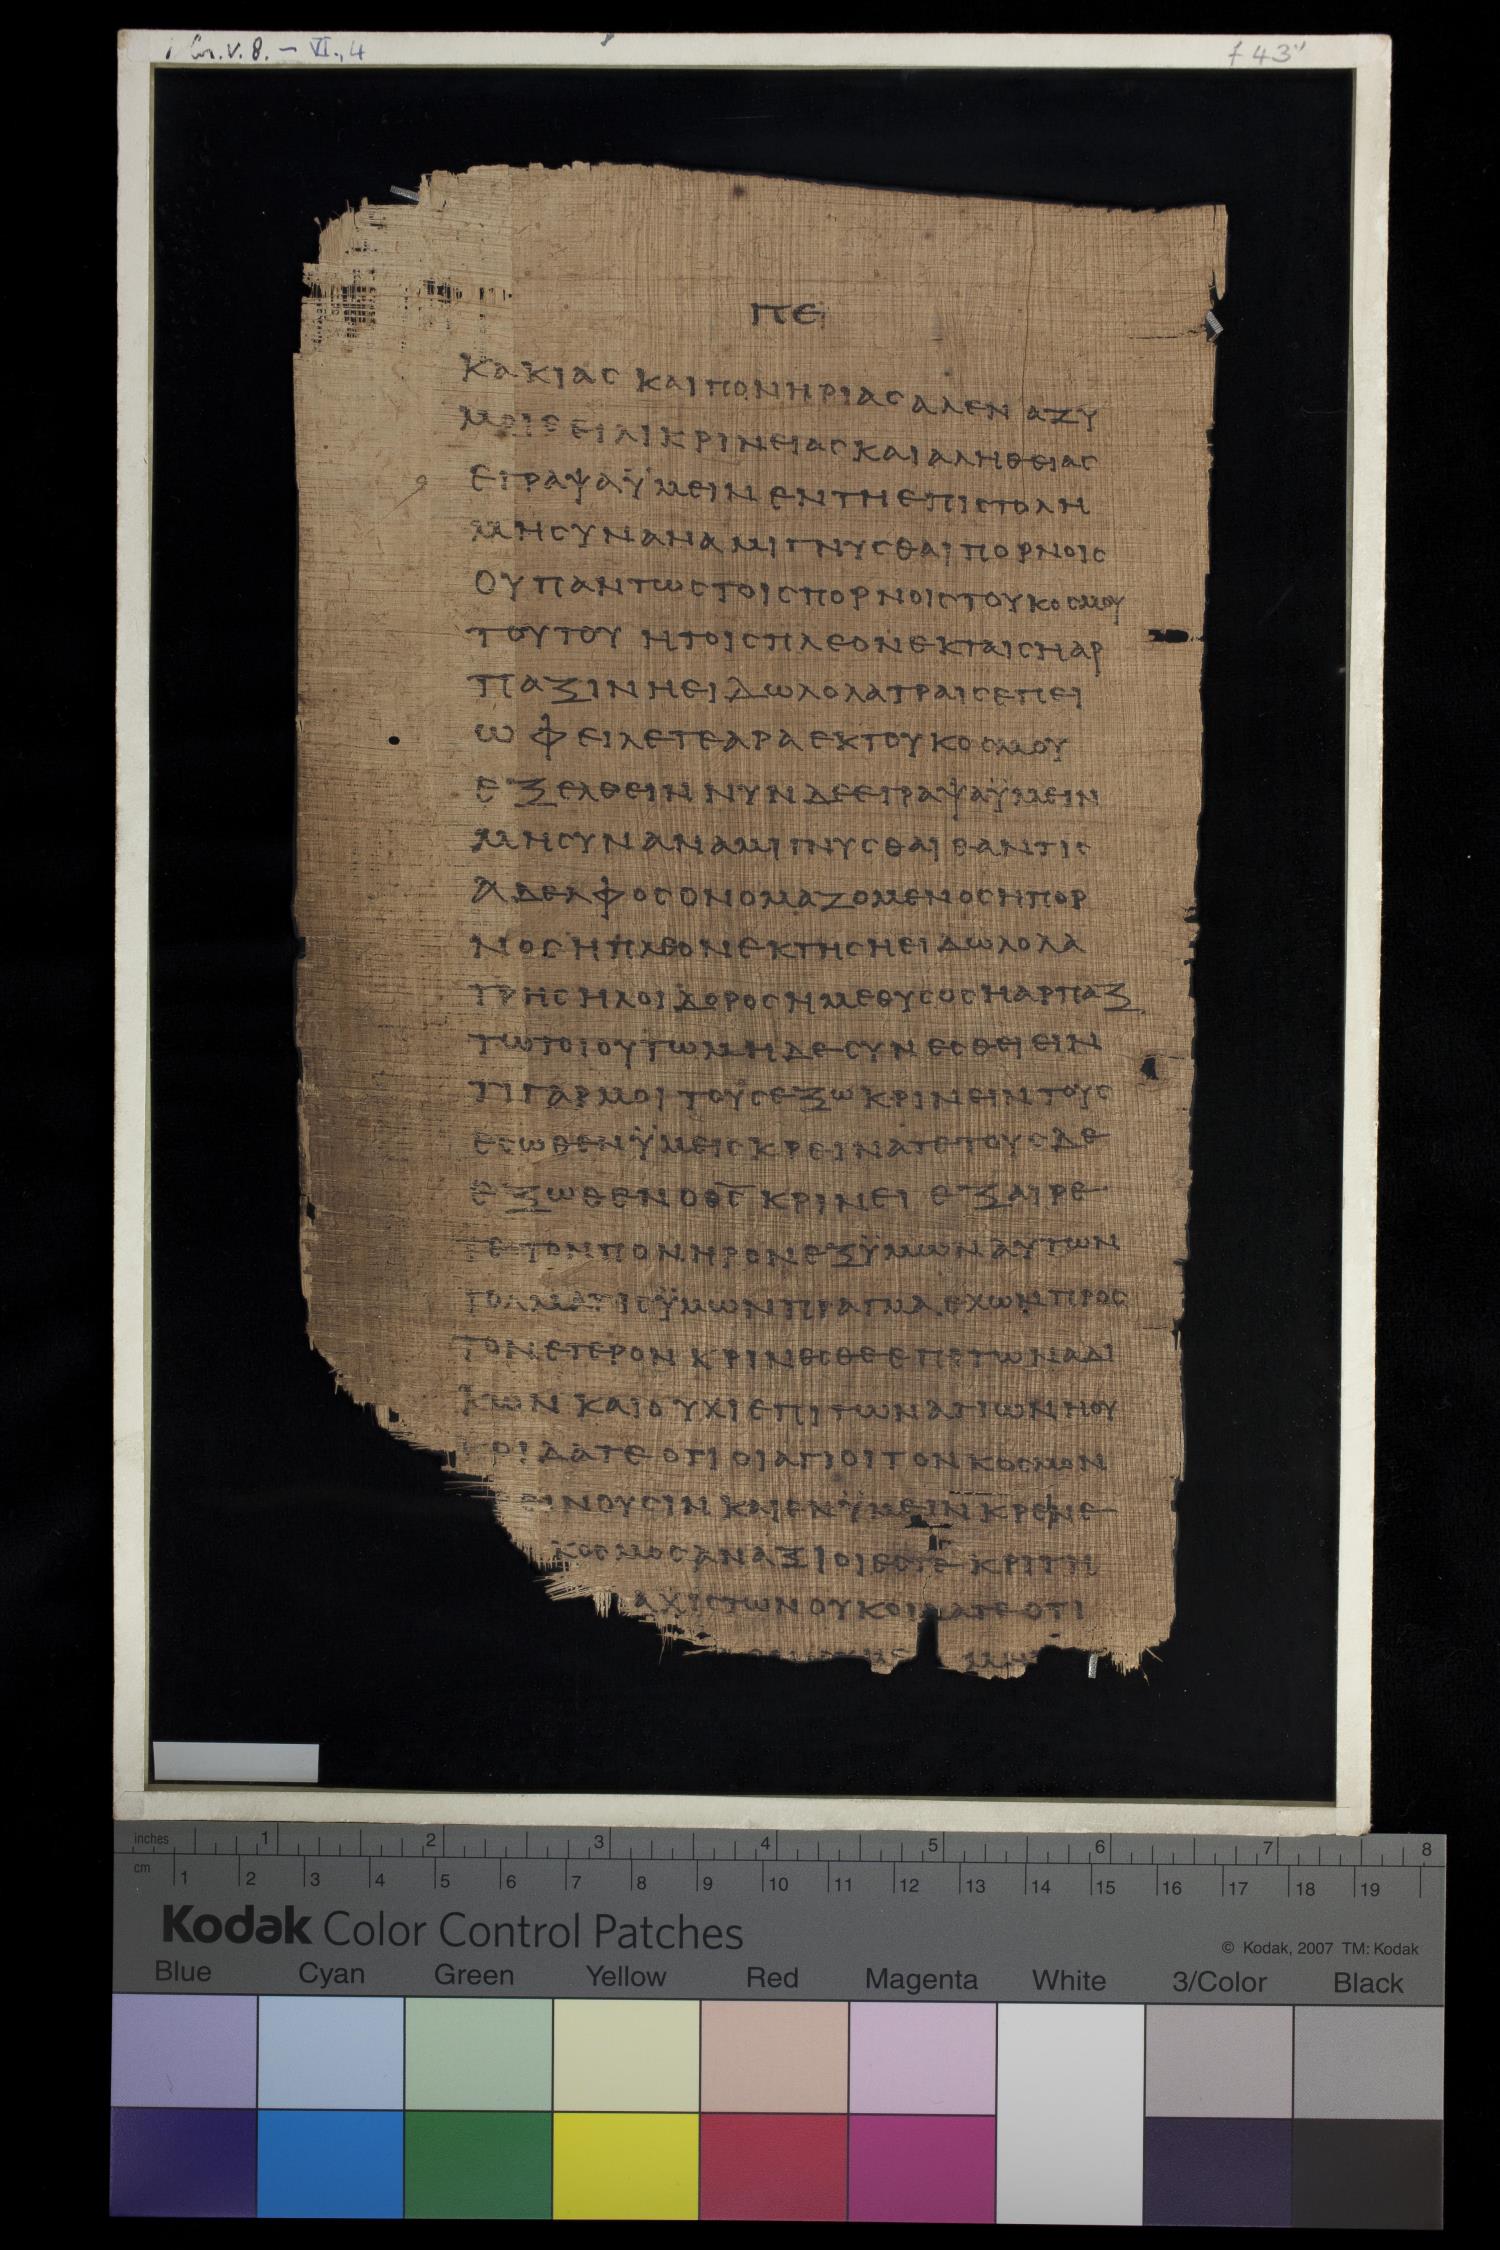 1 Cor. V. 8. – VI., 4
f 43"
ΠΕ
ΚΑΚΙΑΣ ΚΑΙ ΠΟΝΗΡΙΑΣ ΑΛ ΕΝ ΑΖΥ
ΜΟΙΣ ΕΙΛΙΚΡΙΝΕΙΑΣ ΚΑΙ ΑΛΗΘΕΙΑΣ
ΕΓΡΑΨΑ ΫΜΕΙΝ ΕΝ ΤΗ ΕΠΙΣΤΟΛΗ
ΜΗ ΣΥΝΑΝΑΜΙΓΝΥΣΘΑΙ ΠΟΡΝΟΙΣ
ΟΥ ΠΑΝΤΩΣ ΤΟΙΣ ΠΟΡΝΟΙΣ ΤΟΥ ΚΟΣΜΟΥ
ΤΟΥΤΟΥ Η ΤΟΙΣ ΠΛΕΟΝΕΚΤΑΙΣ Η ΑΡ
ΠΑΞΙΝ Η ΕΙΔΩΛΟΛΑΤΡΑΙΣ ΕΠΕΙ
ΩΦΕΙΛΕΤΕ ΑΡΑ ΕΚ ΤΟΥ ΚΟΣΜΟΥ
ΕΞΕΛΘΕΙΝ ΝΥΝ ΔΕ ΕΓΡΑΨΑ ΫΜΕΙΝ
ΜΗ ΣΥΝΑΝΑΜΙΓΝΥΣΘΑΙ ΕΑΝ ΤΙΣ
ΑΔΕΛΦΟΣ ΟΝΟΜΑΖΟΜΕΝΟΣ Η ΠΟΡ
ΝΟΣ Η ΠΛΕΟΝΕΚΤΗΣ Η ΕΙΔΩΛΟΛΑ
ΤΡΗΣ Η ΛΟΙΔΟΡΟΣ Η ΜΕΘΥΣΟΣ Η ΑΡΠΑΞ
ΤΩ ΤΟΙΟΥΤΩ ΜΗΔΕ ΣΥΝΕΣΘΕΙΕΙΝ
ΤΙ ΓΑΡ ΜΟΙ ΤΟΥΣ ΕΞΩ ΚΡΙΝΕΙΝ ΤΟΥΣ
ΕΣΩΘΕΝ ΫΜΕΙΣ ΚΡΕΙΝΑΤΕ ΤΟΥΣ ΔΕ
ΕΞΩΘΕΝ Ο Θ̅Σ̅ ΚΡΙΝΕΙ ΕΞΑΙΡΕ
ΤΕ ΤΟΝ ΠΟΝΗΡΟΝ ΕΞ ΫΜΩΝ ΑΥΤΩΝ
ΤΟΛΜΑ ΤΙΣ ΫΜΩΝ ΠΡΑΓΜΑ ΕΧΩΝ ΠΡΟΣ
ΤΟΝ ΕΤΕΡΟΝ ΚΡΙΝΕΣΘΕ ΕΠΙ ΤΩΝ ΑΔΙ
ΚΩΝ ΚΑΙ ΟΥΧΙ ΕΠΙ ΤΩΝ ΑΓΙΩΝ Η ΟΥ
Κ ΟΙΔΑΤΕ ΟΤΙ ΟΙ ΑΓΙΟΙ ΤΟΝ ΚΟΣΜΟΝ
ΕΙΝΟΥΣΙΝ ΚΑΙ ΕΝ ΫΜΕΙΝ ΚΡΕΙΝΕ
ΚΟΣΜΟΣ ΑΝΑΞΙΟΙ ΕΣΤΕ ΚΡΙΤΗ
ΑΧΙΣΤΩΝ ΟΥΚ ΟΙΔΑΤΕ ΟΤΙ
inches 1 2 3 4 5 6 7 8
cm 1 2 3 4 5 6 7 8 9 10 11 12 13 14 15 16 17 18 19
Kodak Color Control Patches
© Kodak, 2007 TM: Kodak
Blue Cyan Green Yellow Red Magenta White 3/Color Black